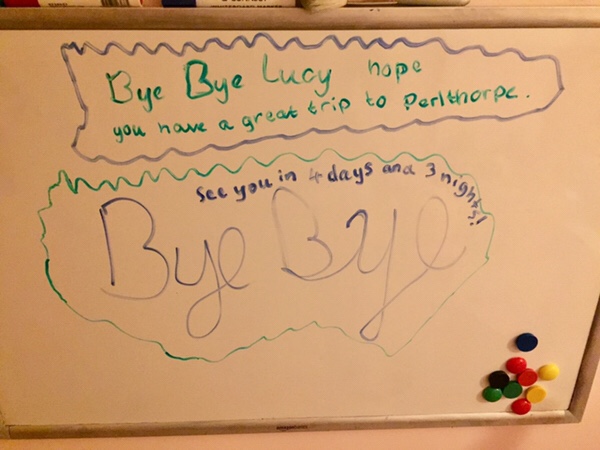 Bye Bye Lucy hope
you have a great trip to Perlthorpe.
See you in 4 days and 3 nights!
Bye Bye